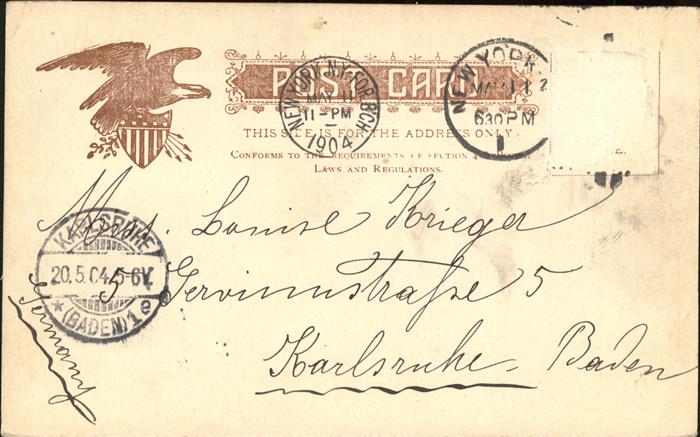 POST CARD
NEW YORK, N.Y. FOR. BCH.
MAY 11
11-PM
1904
NEW YORK
MAY 11
630PM
THIS SIDE IS FOR THE ADDRESS ONLY
CONFORMS TO THE REQUIREMENTS OF SECTION 4
LAWS AND REGULATIONS.
Mrs. Louise Krieger
KARLSRUHE
20.5.04. 5-6V.
* (BADEN) 1e
5 Gervinusstraße 5
Karlsruhe - Baden
Germany